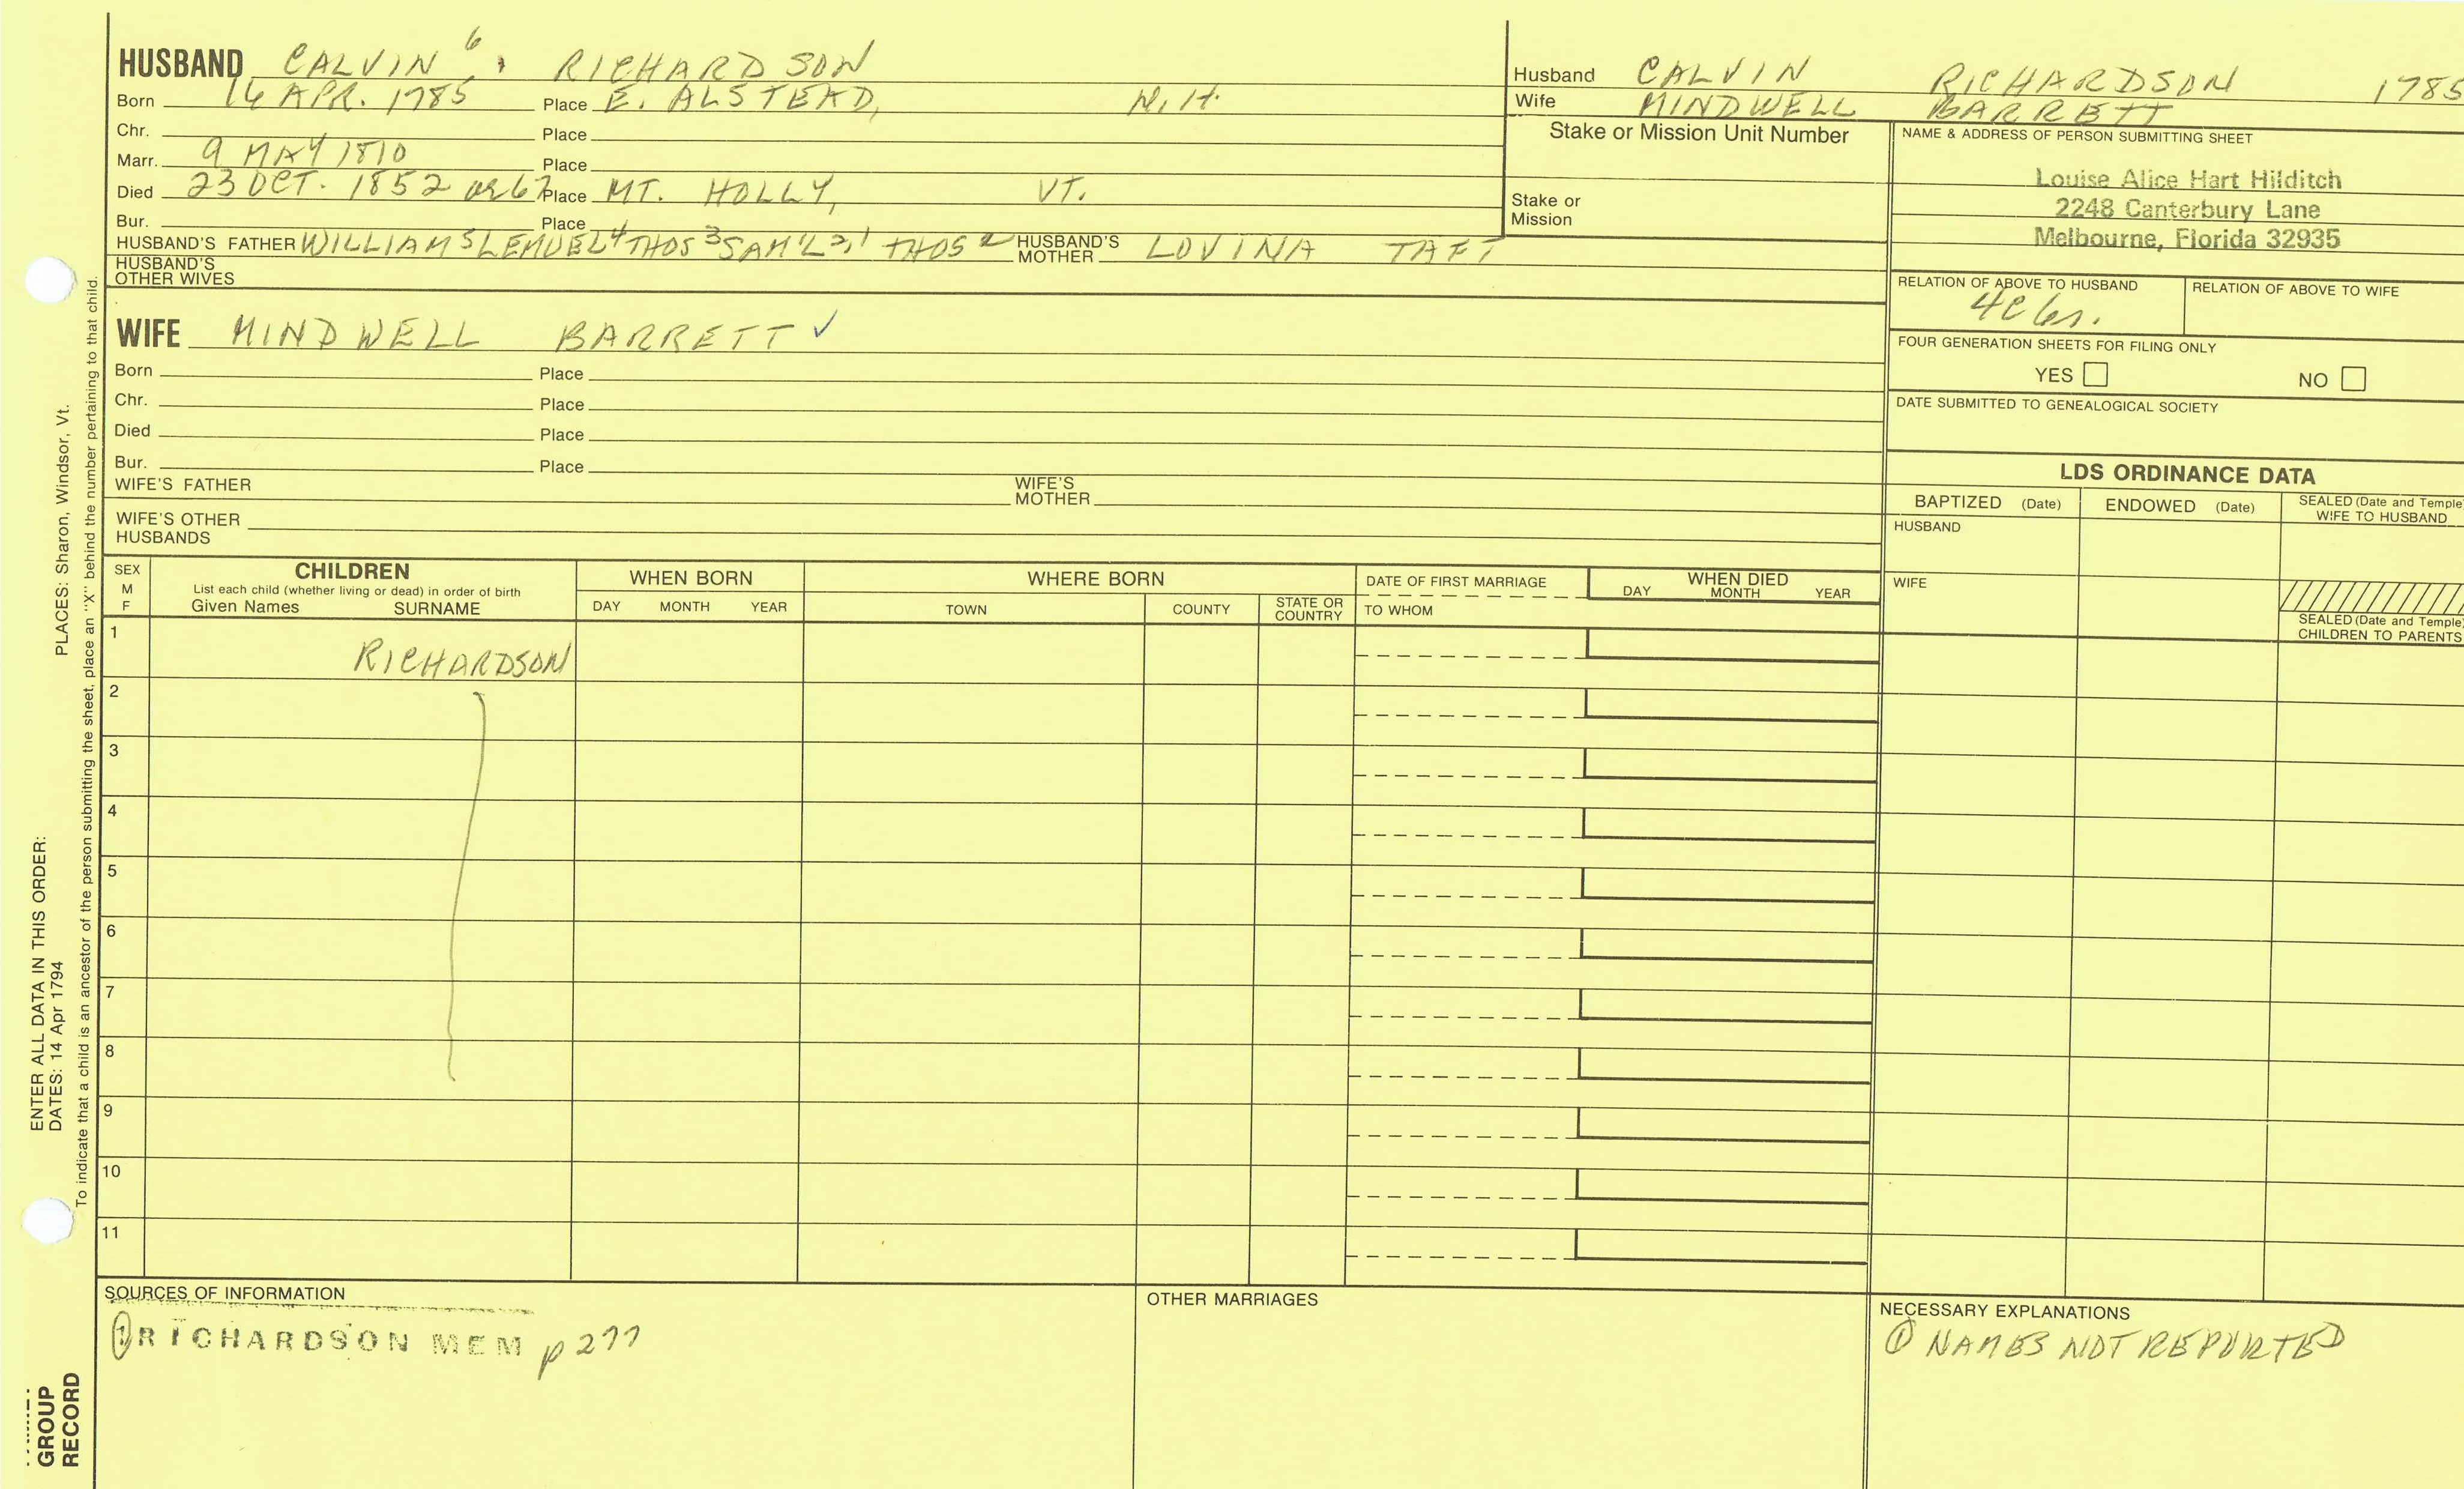 HUSBAND CALVIN 6 RICHARDSON
Born 16 APR. 1785 Place E. ALSTEAD, N.H.
Chr. Place
Marr. 9 MAY 1810 Place
Died 23 OCT. 1852 or 67 Place MT. HOLLY, VT.
Bur. Place
HUSBAND'S FATHER WILLIAM 5 LEMUEL 4 THOS 3 SAM'L 2, 1 THOS HUSBAND'S MOTHER LOVINA TAFT
HUSBAND'S OTHER WIVES
WIFE MINDWELL BARRETT ✓
Born Place
Chr. Place
Died Place
Bur. Place
WIFE'S FATHER WIFE'S MOTHER
WIFE'S OTHER HUSBANDS
Husband CALVIN RICHARDSON 1785
Wife MINDWELL BARRETT
Stake or Mission Unit Number
Stake or Mission
NAME & ADDRESS OF PERSON SUBMITTING SHEET
Louise Alice Hart Hilditch
2248 Canterbury Lane
Melbourne, Florida 32935
RELATION OF ABOVE TO HUSBAND RELATION OF ABOVE TO WIFE
FOUR GENERATION SHEETS FOR FILING ONLY
YES NO
DATE SUBMITTED TO GENEALOGICAL SOCIETY
LDS ORDINANCE DATA
BAPTIZED (Date) ENDOWED (Date) SEALED (Date and Temple) WIFE TO HUSBAND
HUSBAND
WIFE
SEALED (Date and Temple) CHILDREN TO PARENTS
SEX M F
CHILDREN
List each child (whether living or dead) in order of birth
Given Names SURNAME
WHEN BORN
DAY MONTH YEAR
WHERE BORN
TOWN COUNTY STATE OR COUNTRY
DATE OF FIRST MARRIAGE
TO WHOM
WHEN DIED
DAY MONTH YEAR
1 RICHARDSON
2
3
4
5
6
7
8
9
10
11
SOURCES OF INFORMATION
① RICHARDSON MEM p 277
OTHER MARRIAGES
NECESSARY EXPLANATIONS
① NAMES NOT REPORTED
ENTER ALL DATA IN THIS ORDER:
DATES: 14 Apr 1794 PLACES: Sharon, Windsor, Vt.
To indicate that a child is an ancestor of the person submitting the sheet, place an "X" behind the number pertaining to that child.
GROUP
RECORD